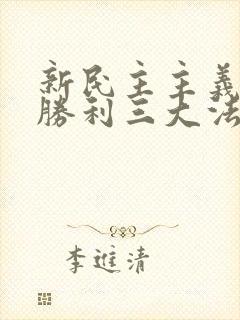 新民主主義
勝利三大法
李進清